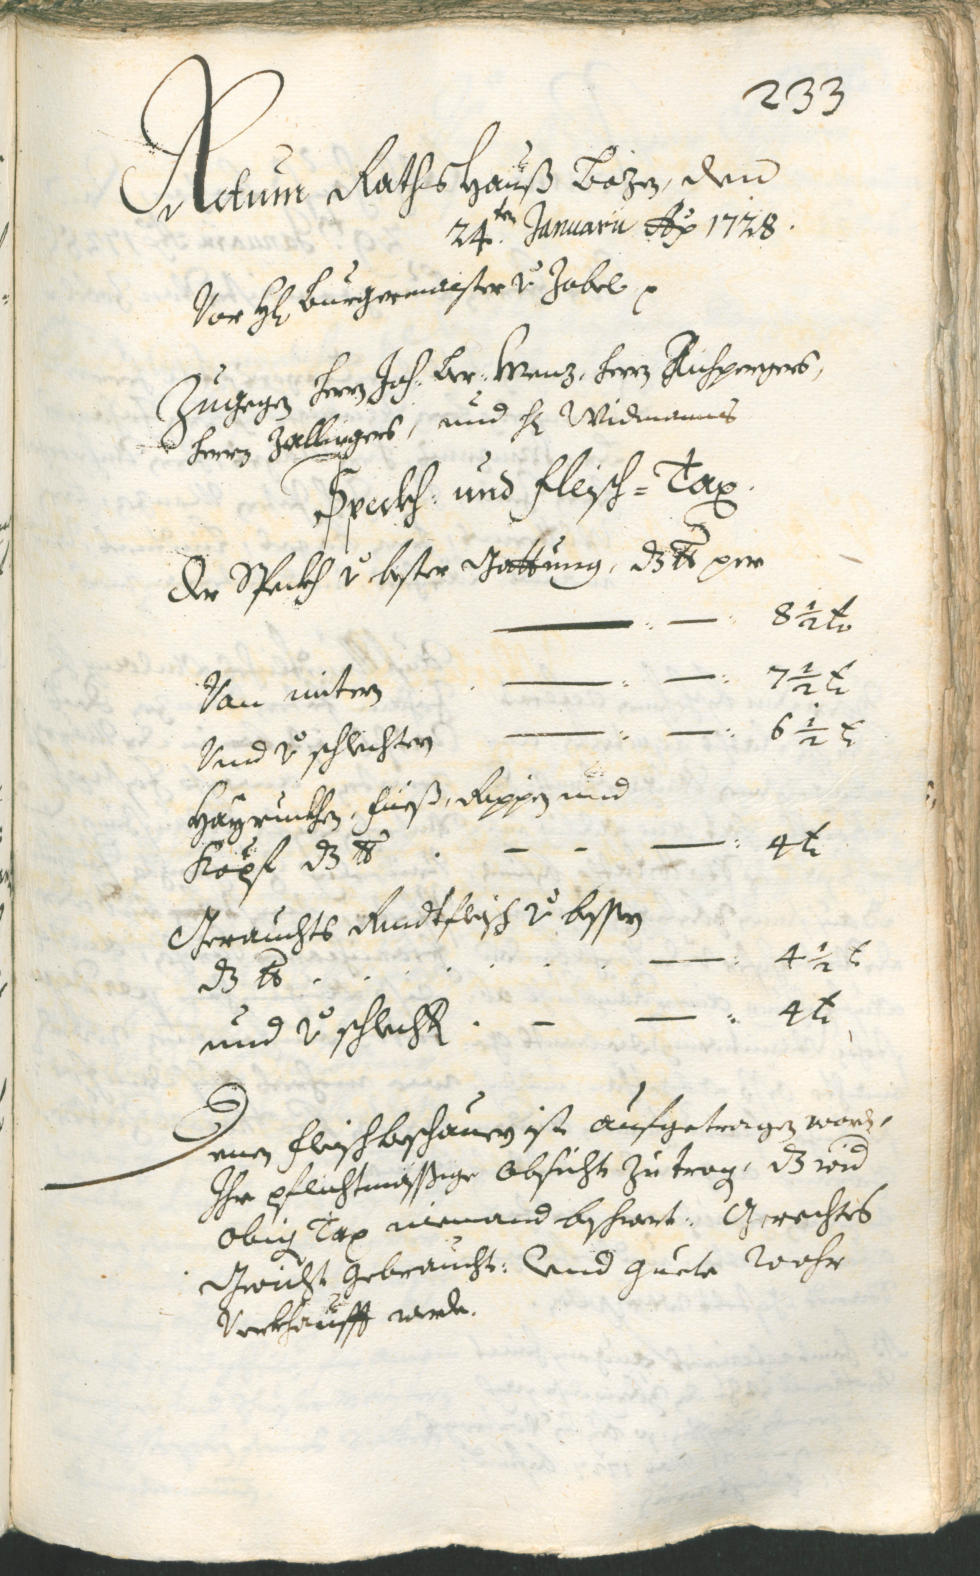 233
Actum Raths Hauß Bozen, den
24ten Januarii Ao 1728.
Vor H: Burgermaister v: Zobel p
Zugegen herrn Joh: Ber: Menz, herrn Aichpergers,
herrn Zallingers, und H: Widmanns
Speckh- und fleisch=Tax.
Der Speckh v: bester Gattung, dz lb per
8 1/2 kr
Von mitern 7 1/2 kr
Und v: schlechten 6 1/2 kr
Hayruckhen, füeß, Rippen und
Köpf dz lb 4 kr
Gerauchts Rindtfleisch v: besten
dz lb 4 1/2 kr
und v: schlecht 4 kr
Denen fleischbeschauern ist aufgetragen word,
Ihr pflichtmässige obsicht zu trag, dz wid
obig Tax niemand beschwert: Gerechtes
Gwicht gebraucht: Und guete Wahr
Verkhaufft werde.